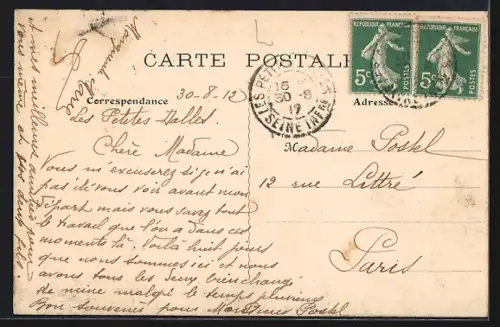 CARTE POSTALE
Correspondance
Adresse
RÉPUBLIQUE FRANÇAISE
5c
POSTES
RÉPUBLIQUE FRANÇAISE
5c
POSTES
LES PETITES
15
30-8
12
SEINE INFRE
30-8-12
Les Petites Dalles.
Chère Madame
Vous m'excuserez si je n'ai
pas été vous voir avant mon
départ mais vous savez tout
le travail que l'on a dans ces
moments là. Voilà huit jours
que nous sommes ici et nous
avons tous les deux bien changé
de mine malgré le temps pluvieux
Bon souvenir pour Monsieur Postel
Madame Postel
12 rue Littré
Paris
A mes meilleures amitiés pour
vous même et vos deux